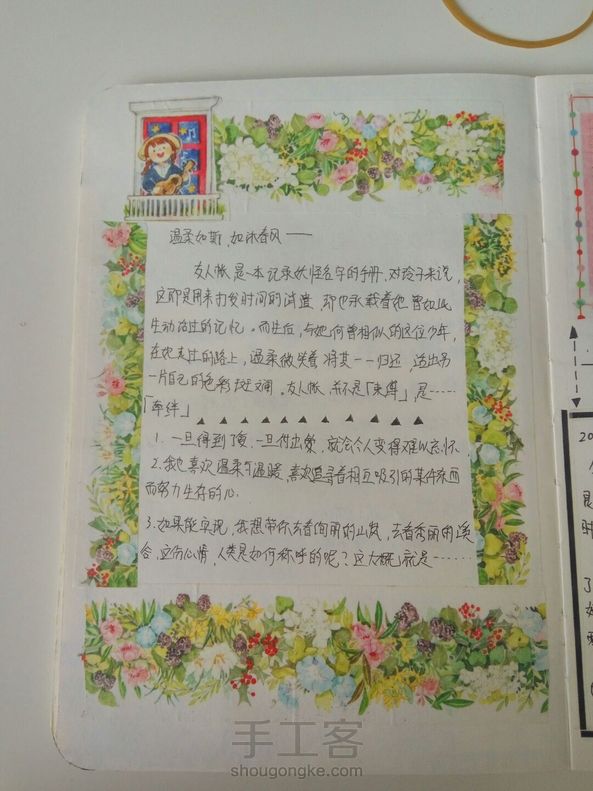 温柔如斯,如沐春风——
友人帐是一本记录妖怪名字的手册.对玲子来说,
这即是用来打发时间的 ,那也承载着她曾如此
生动活过的记忆。而生后,与她何曾相似的这位少年,
在她走过的路上,温柔微笑着将其一一归还,活出另
一片自己的色彩斑斓。友人帐,并不是「束缚」,是……
「牵绊」
1.一旦得到了爱,一旦付出爱,就会令人变得难以忘怀.
2.我也喜欢温柔与温暖,喜欢追寻着相互吸引的某件东西
而努力生存的心.
3.如果能实现,我想带你去看绚丽的山 ,去看秀丽的
合,这份心情,人类是如何称呼的呢?这大概就是……
20
了
手工客
shougongke.com